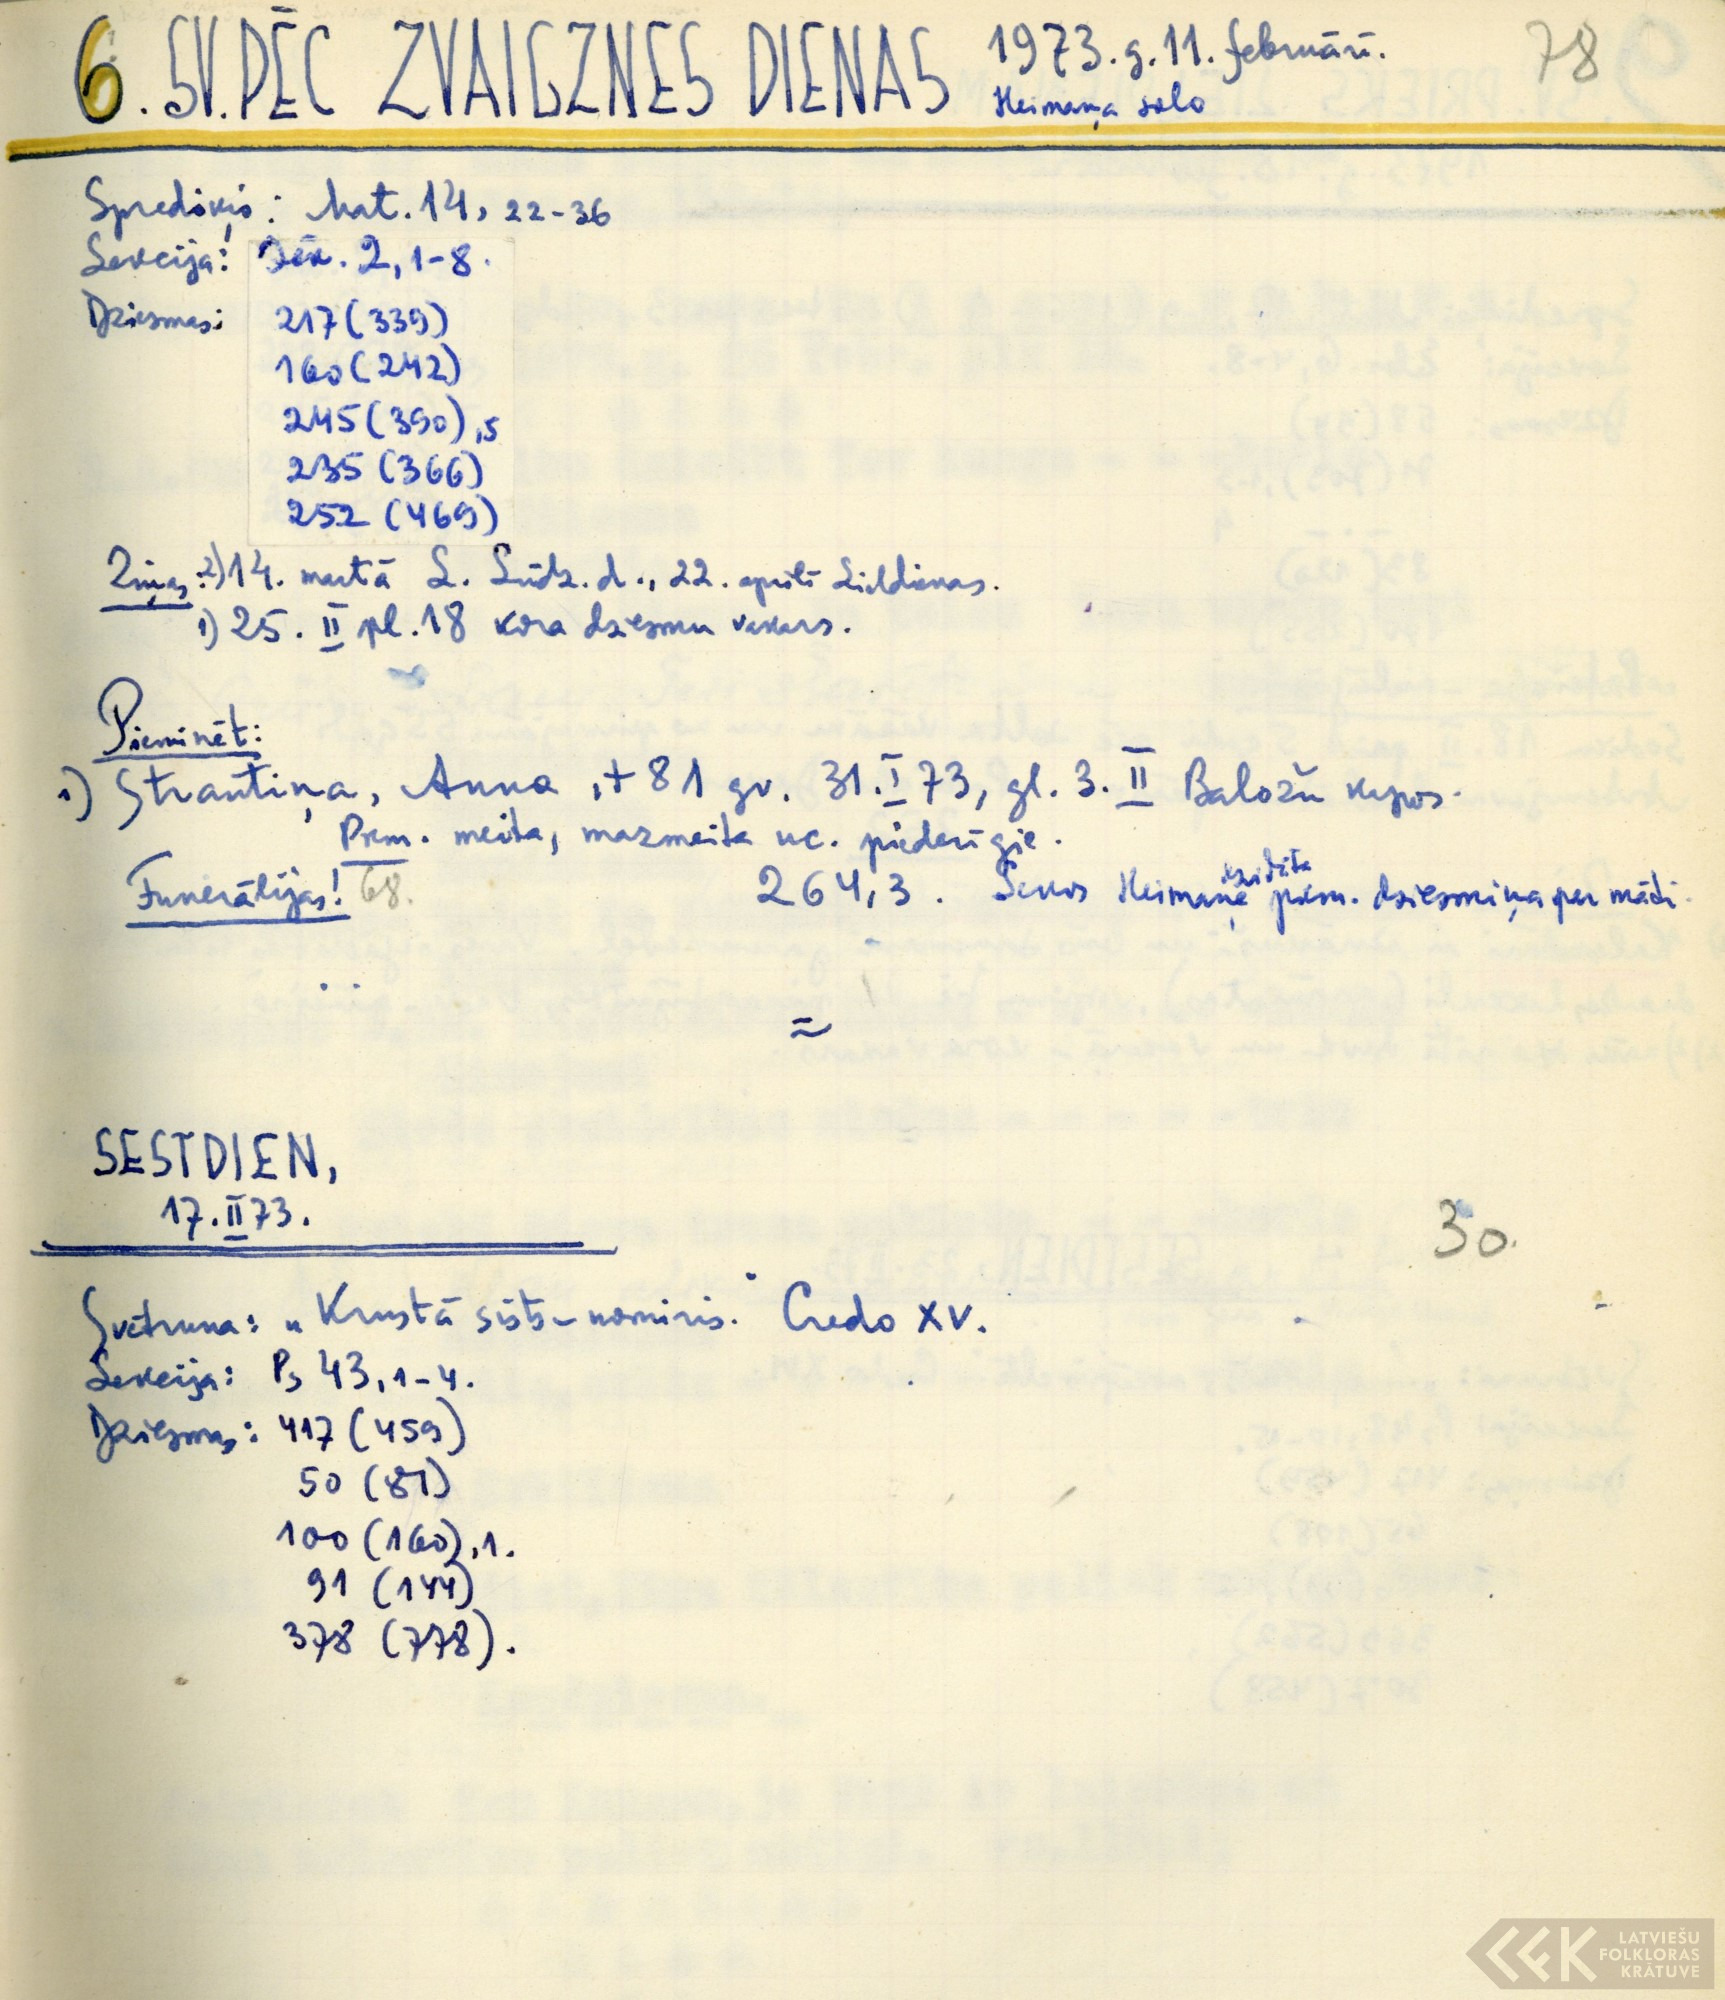 6. SV. PĒC ZVAIGZNES DIENAS 1973. g. 11. februārī. 78
Heimaņa solo
Sprediķis: Mat. 14, 22-36
Lekcija: 2, 1-8.
Dziesmas: 217 (339)
160 (242)
245 (390), 5
235 (366)
252 (469)
Ziņas: 2) 14. martā L. Lūdz. d., 22. aprīlī Lieldienas.
1) 25. II pl. 18 kora dziesmu vakars.
Pieminēt:
1) Strautiņa, Anna, + 81 gv. 31. I 73, gl. 3. II Baložu kapos.
Piem. meita, mazmeita uc. piederīgie.
Funerālijas! 68. 264,3. Sekos Heimaņa izpildīta piem. dziesmiņa par māti.
=
SESTDIEN,
17. II 73.
30.
Svētruna: „Krustā sists – nomiris. Credo XV.
Lekcija: Ps 43, 1-4.
Dziesmas: 417 (459)
50 (81)
100 (160), 1.
91 (144)
378 (778).
LATVIEŠU
FOLKLORAS
KRĀTUVE